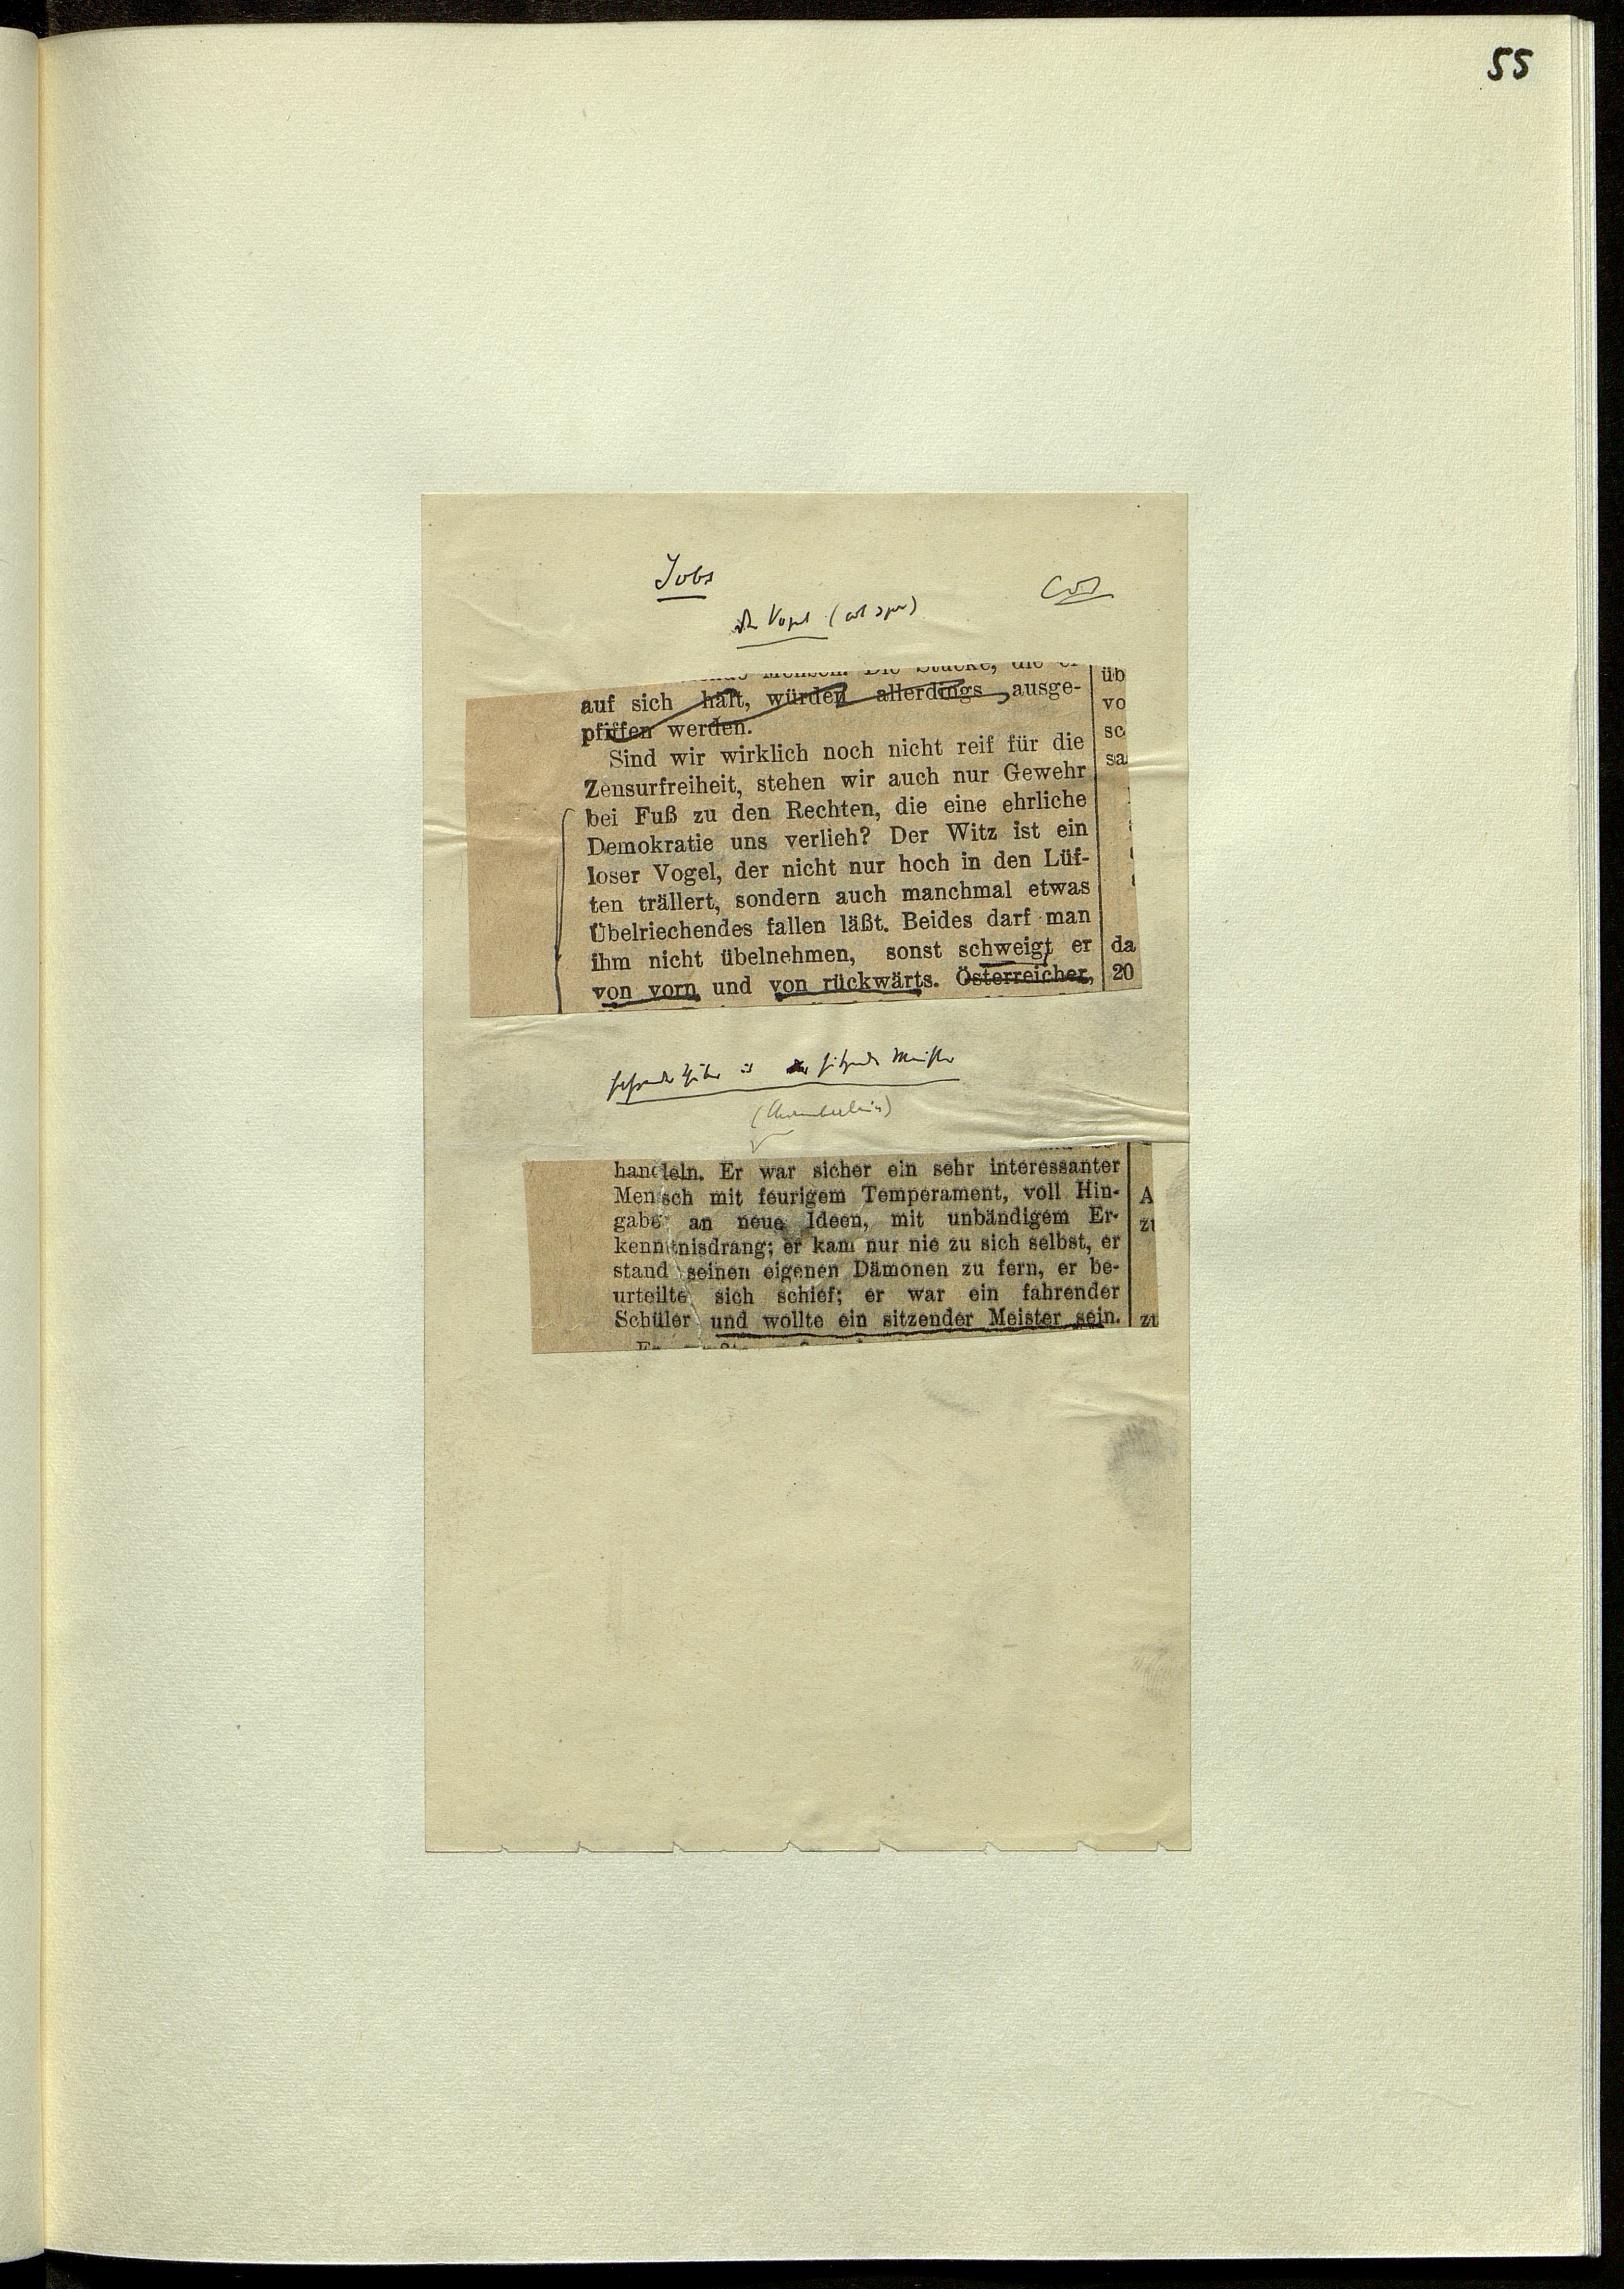 55
Jobs
Vogel
auf sich hält, würden allerdings ausge-
pfiffen werden.
Sind wir wirklich noch nicht reif für die
Zensurfreiheit, stehen wir auch nur Gewehr
bei Fuß zu den Rechten, die eine ehrliche
Demokratie uns verlieh? Der Witz ist ein
loser Vogel, der nicht nur hoch in den Lüf-
ten trällert, sondern auch manchmal etwas
Übelriechendes fallen läßt. Beides darf man
ihm nicht übelnehmen, sonst schweigt er
von vorn und von rückwärts. Österreicher,
üb
vo
sc
sa
da
20
sitzender Meister
(Chamberlain)
handeln. Er war sicher ein sehr interessanter
Mensch mit feurigem Temperament, voll Hin-
gabe an neue Ideen, mit unbändigem Er-
kenntnisdrang; er kam nur nie zu sich selbst, er
stand seinen eigenen Dämonen zu fern, er be-
urteilte sich schief; er war ein fahrender
Schüler und wollte ein sitzender Meister sein.
A
zu
zu